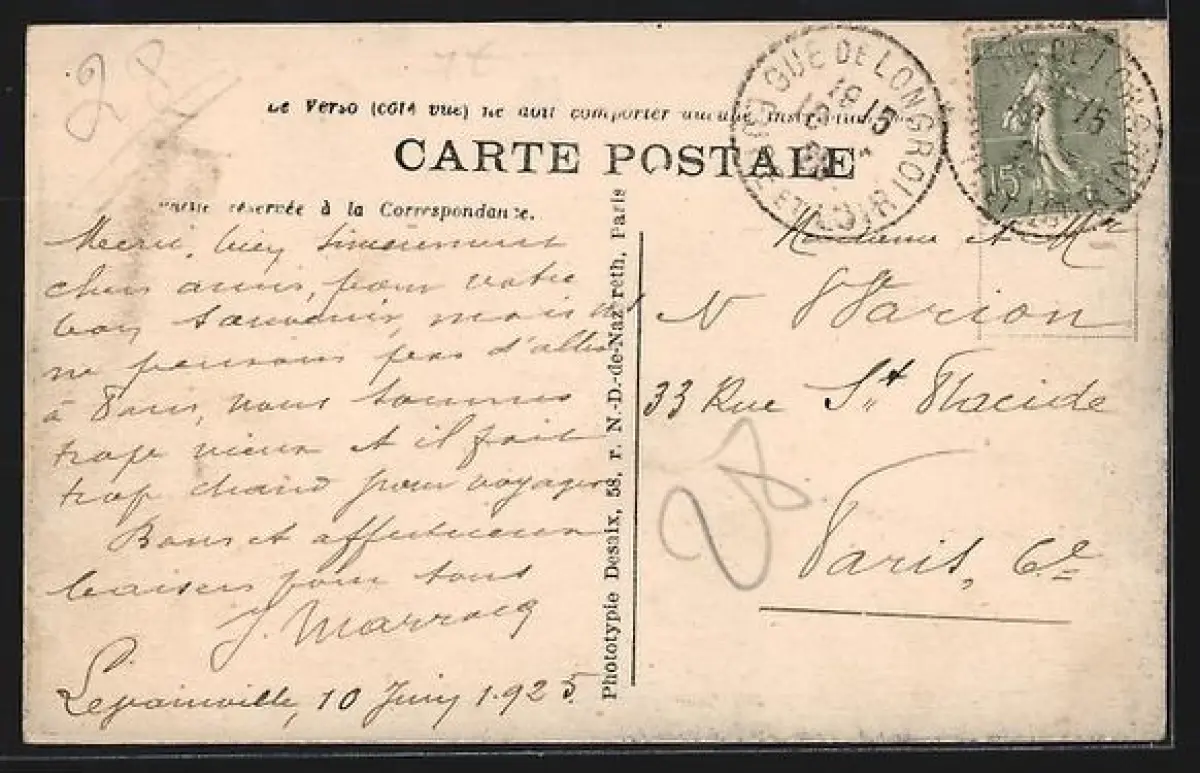 28
Le Verso (côté vue) ne doit comporter aucune
CARTE POSTALE
Partie réservée à la Correspondance.
GUÉ DE LONGROI
EURE ET LOIR
18 15
15
Merci, bien sincèrement
chers amis, pour votre
bon souvenir, mais
ne pensons pas d'aller
à Paris, nous sommes
trop vieux et il fait
trop chaud pour voyager
Bons et affectueux
baisers pour tous
J. Marrocq
10 Juin 1925
Phototypie Desaix, 58, r. N.-D.-de-Nazareth, Paris
Madame et Mr
33 Rue St Placide
Paris, 6e
28